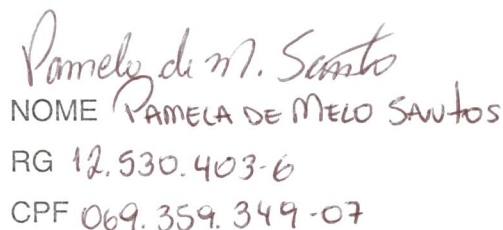 Pamela de M. Santo
NOME PAMELA DE MELO SANTOS
RG 12.530.403-6
CPF 069.359.349-07